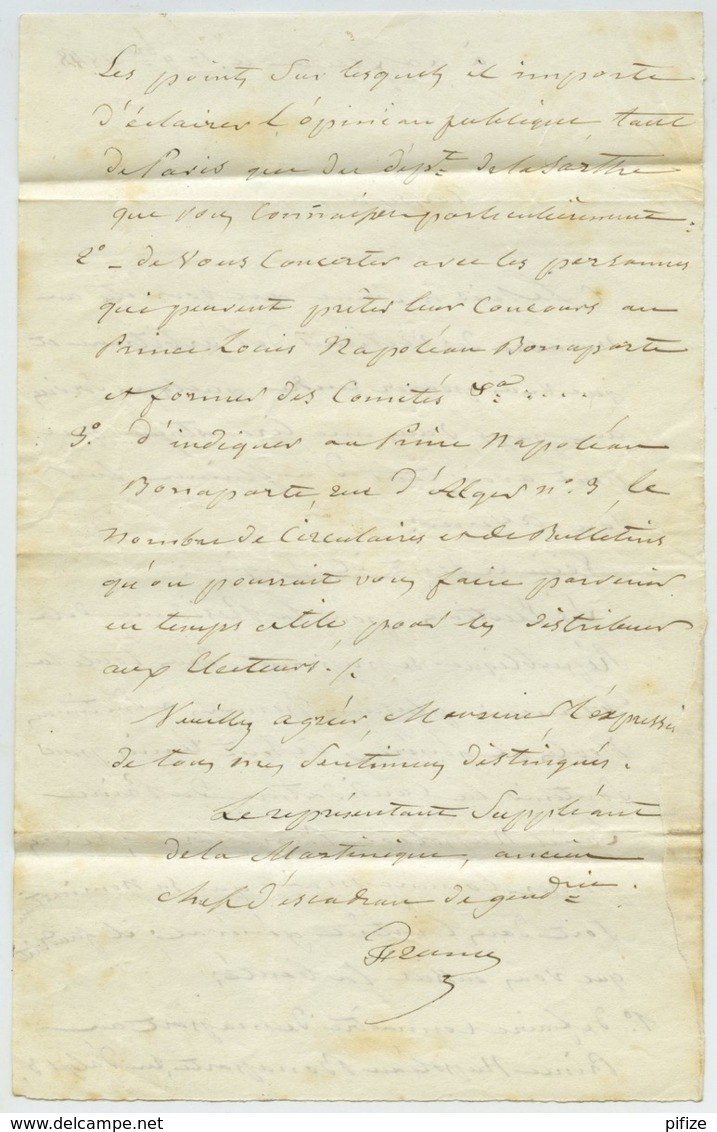 Les points sur lesquels il importe
d'éclairer l'opinion publique, tant
de Paris que du dép.t de la Sarthe
que vous connaissez particulièrement.
2° - de vous concerter avec les personnes
qui peuvent prêter leur concours au
Prince Louis Napoléon Bonaparte
et former des Comités &a. . . . .
3°. d'indiquer au Prince Napoléon
Bonaparte, rue d'Alger n°. 3, le
nombre de Circulaires et de Bulletins
qu'on pourrait vous faire parvenir
en temps utile, pour les distribuer
aux Electeurs./.
Veuillez agréer Monsieur l'expression
de tous mes sentimens distingués.
Le représentant Suppléant
de la Martinique, ancien
chef d'escadron de gendrie.
pifize